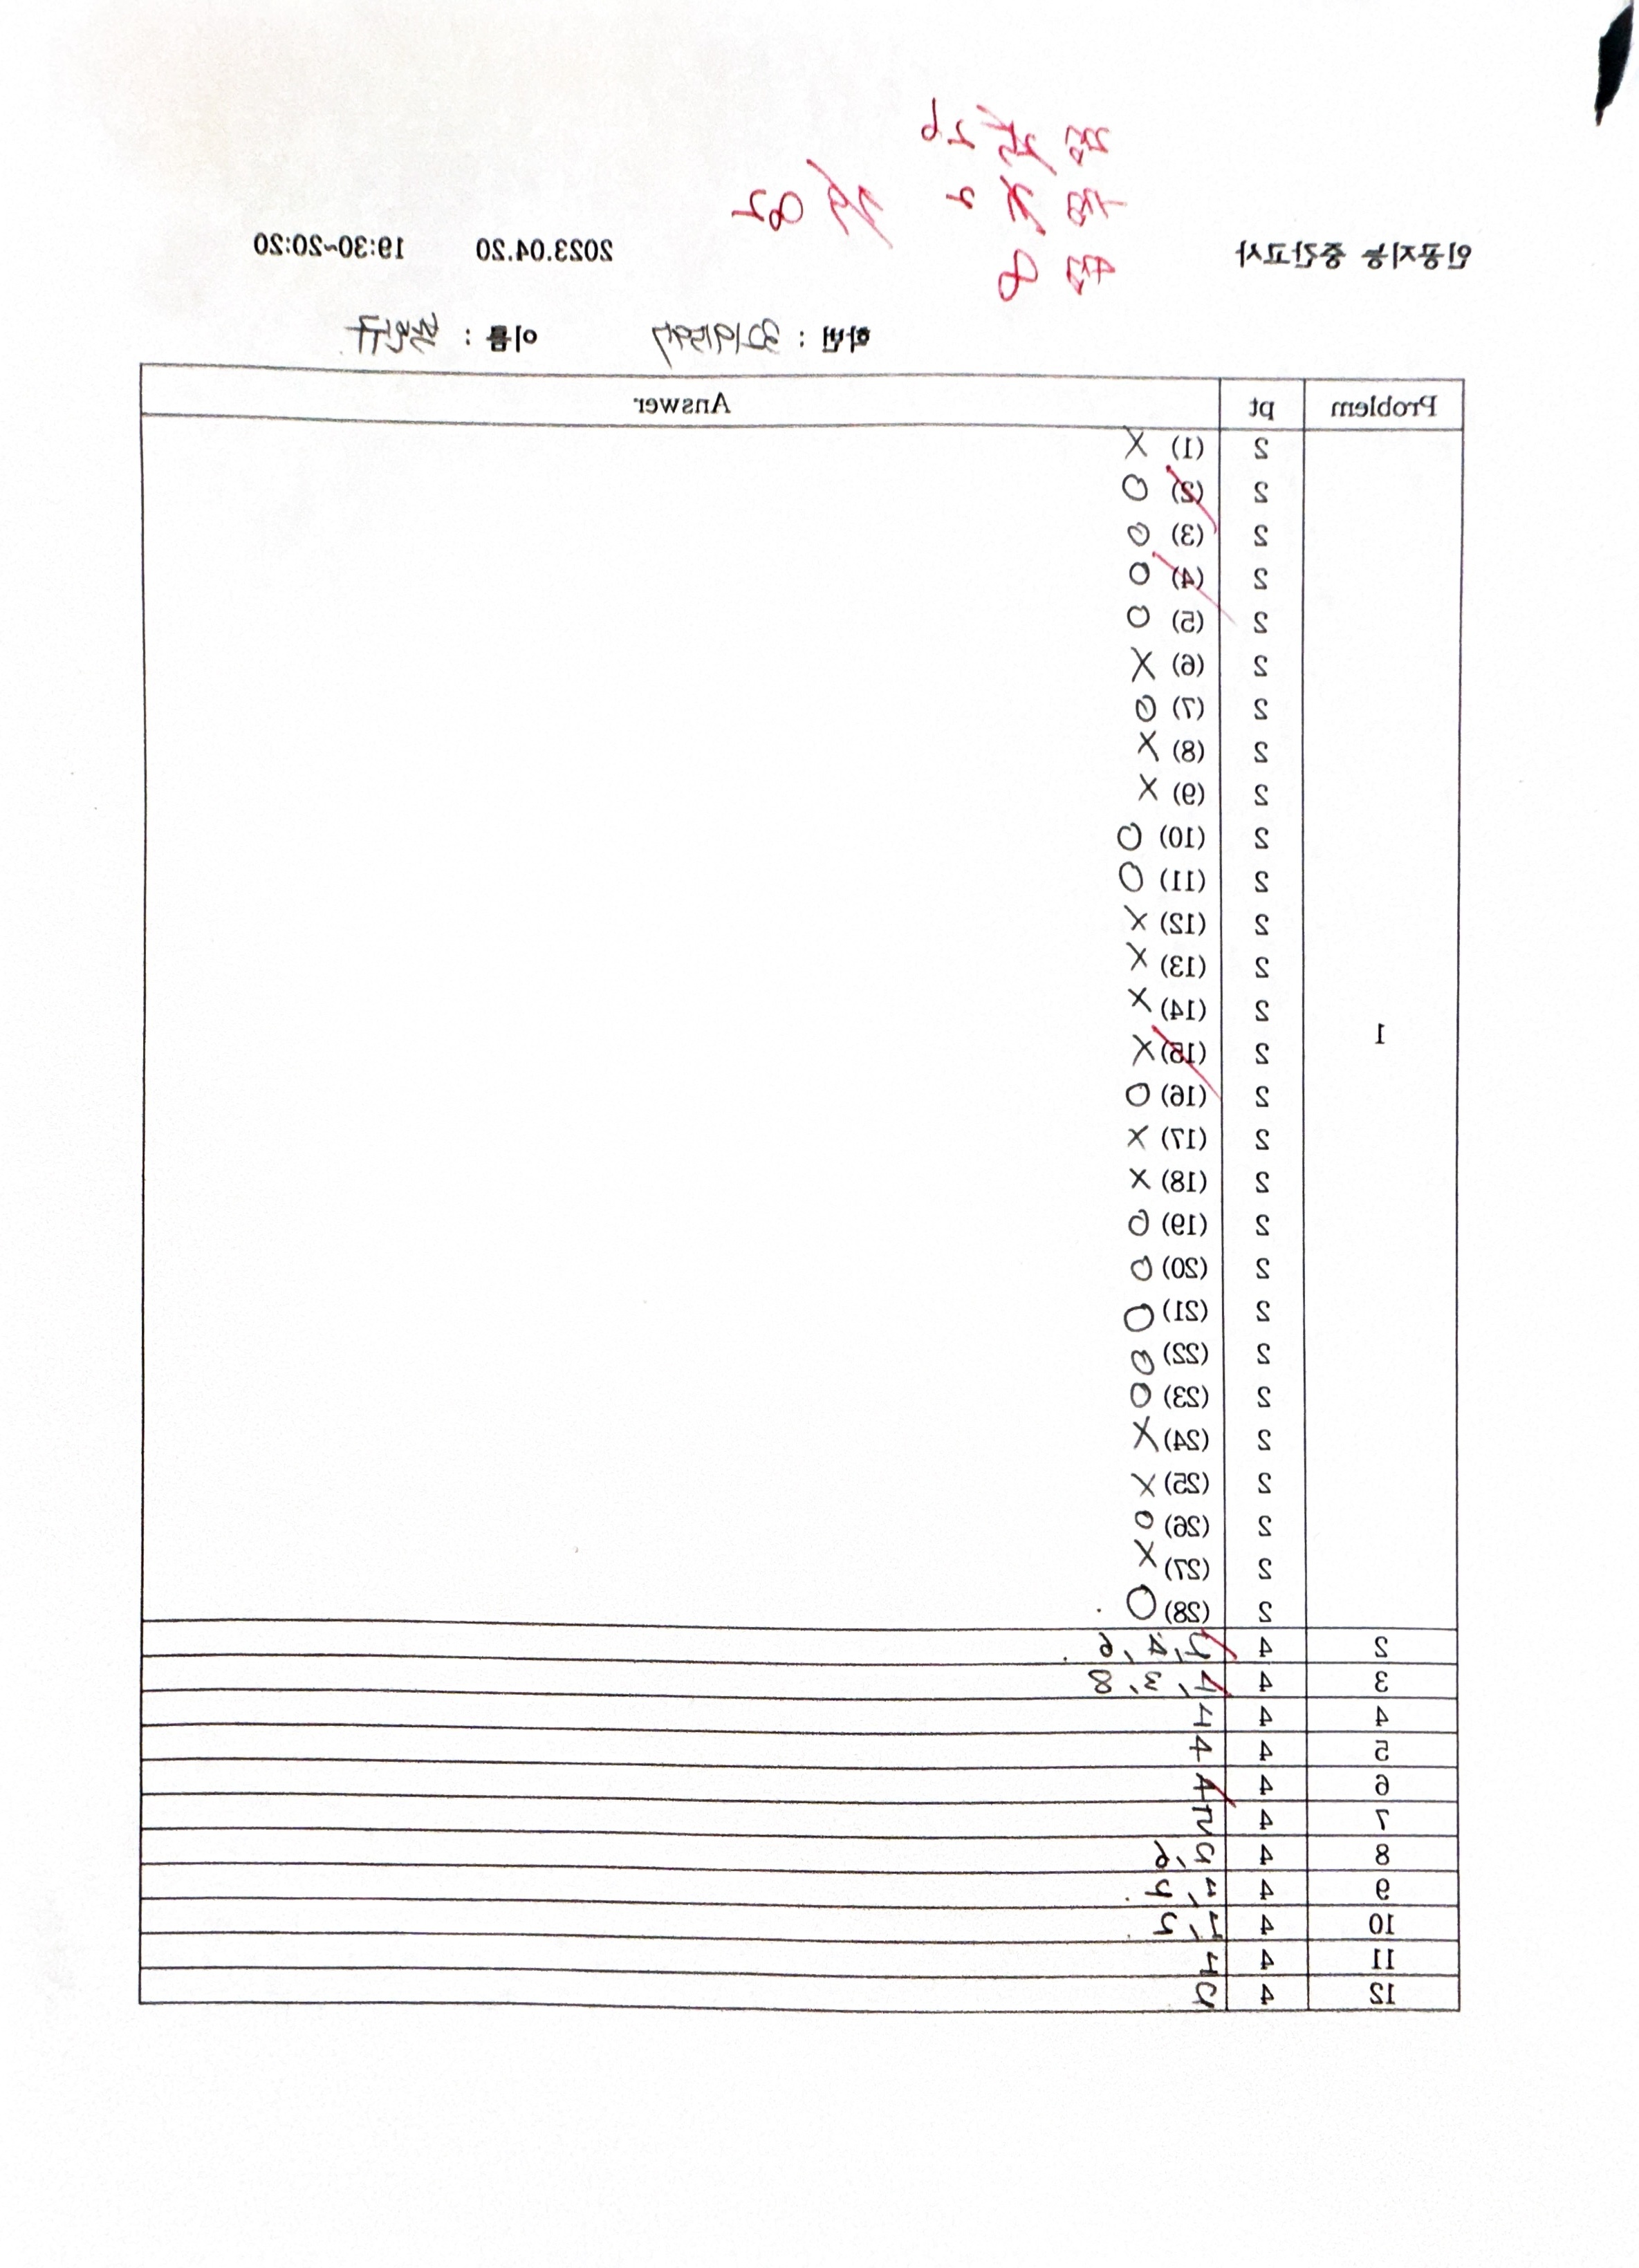 인공지능 중간고사 2023.04.20 19:30~20:20
학번 : 이름 :
Problem pt Answer
1
2 (1) X
2 (2) O
2 (3) O
2 (4) O
2 (5) O
2 (6) X
2 (7) O
2 (8) X
2 (9) X
2 (10) O
2 (11) O
2 (12) X
2 (13) X
2 (14) X
2 (15) X
2 (16) O
2 (17) X
2 (18) X
2 (19) O
2 (20) O
2 (21) O
2 (22) O
2 (23) O
2 (24) X
2 (25) X
2 (26) O
2 (27) X
2 (28) O
2 4
3 4 1, 3, 8
4 4 4
5 4 4
6 4 4
7 4
8 4
9 4
10 4
11 4
12 4